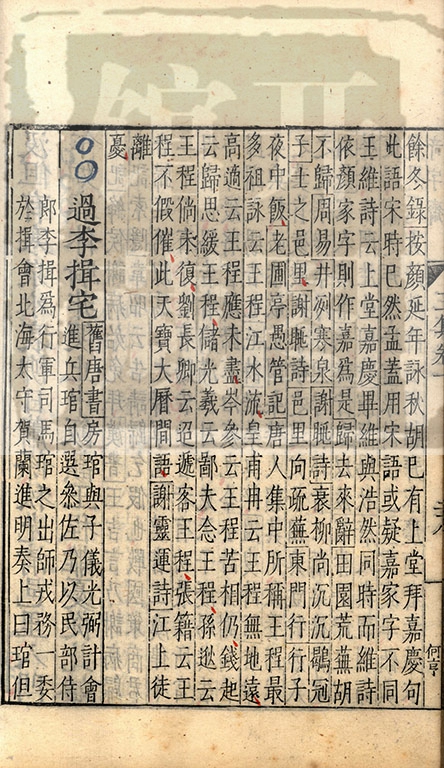 餘冬錄按顏延年詠秋胡巳有上堂拜嘉慶句
此語宋時巳然孟蓋用宋語或疑嘉家字不同
王維詩云上堂嘉慶畢維與浩然同時而維詩
依顏家字則作嘉為是歸去來辭田園荒蕪胡
不歸周易井冽寒泉謝朓詩衰柳尚沉沉鶡冠
子士之邑里謝朓詩邑里向疏蕪東門行行子
夜中飯老圃亭愚管記唐人集中所稱王程最
多祖詠云王程江水流皇甫冉云王程無地遠
高適云王程應未盡岑參云王程苦相仍錢起
云歸思緩王程儲光羲云鄙夫念王程孫逖云
王程倘未復劉長卿云迢遞客王程張籍云王
程不假催此天寶大曆間語謝靈運詩江上徒
離
憂
過李揖宅
舊唐書房琯與子儀光弼計會
進兵琯自選參佐乃以民部侍
郎李揖為行軍司馬琯之出師戎務一委
於揖會北海太守賀蘭進明奏上曰琯但